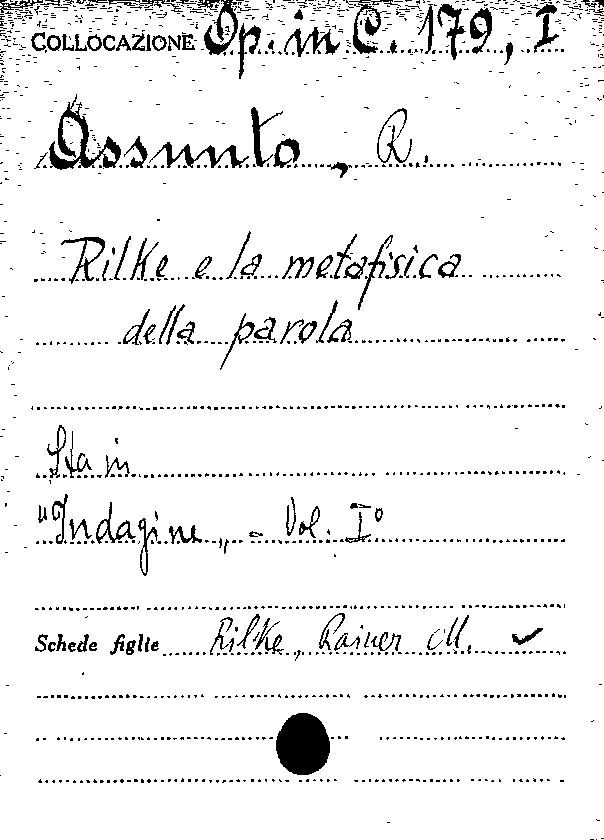 COLLOCAZIONE Op. in C. 179, I
Assunto, R.
Rilke e la metafisica
della parola
Sta in
"Indagine„ - Vol. I°
Schede figlie Rilke, Rainer M. ✓